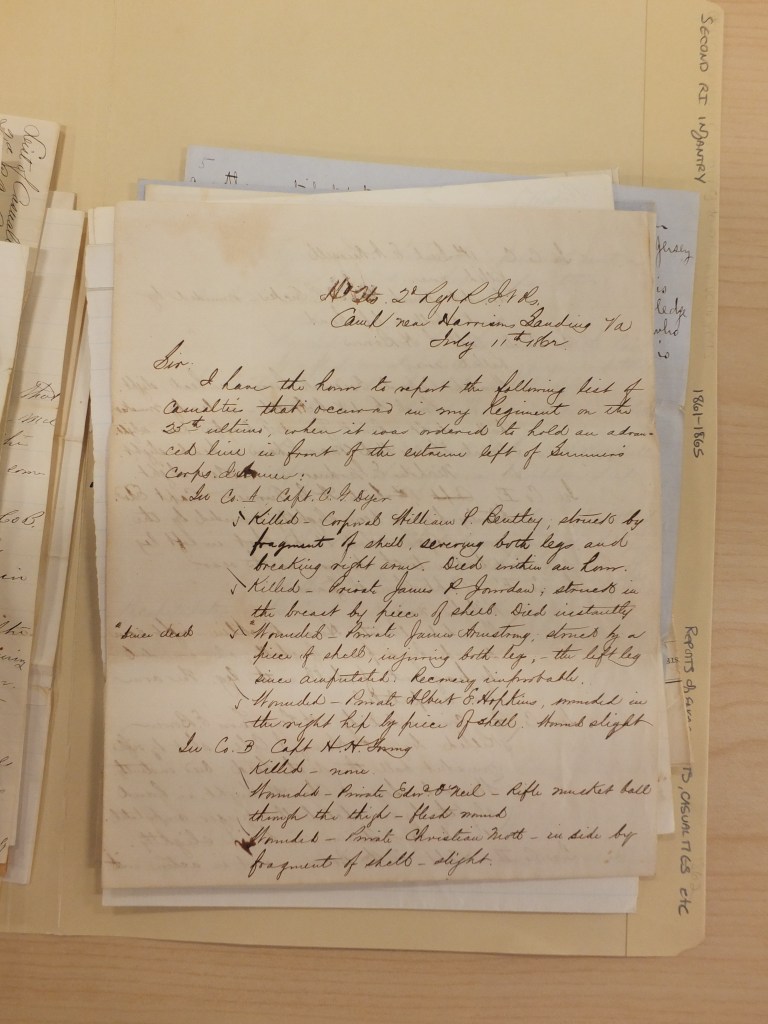 Hd Qts. 2d Regt R I Vls.
Camp near Harrisons Landing Va
July 11th 1862.
Sir.
I have the honor to report the following list of
Casualties that occurred in my Regiment on the
25th ultimo, when it was ordered to hold an advan-
ced line in front of the extreme left of Sumner's
corps.
In Co. A Capt. C. G Dyer
Killed – Corporal William P. Bentley, struck by
fragment of shell, severing both legs and
breaking right arm. Died within an hour.
Killed – Private James P Jourdan, struck in
the breast by piece of shell. Died instantly
"since dead
"Wounded – Private James Armstrong, struck by a
piece of shell, injuring both leg, – the left leg
since amputated. Recovery improbable.
Wounded – Private Albert E. Hopkins, wounded in
the right hip by piece of shell. Wound slight
In Co. B Capt H. H. Young
Killed – none
Wounded – Private Edwd O'Neil – Rifle musket ball
through the thigh – flesh wound
Wounded – Private Christian Mott – in side by
fragment of shell – slight.
SECOND RI INFANTRY
1861-1865
REPORTS
CASUALTIES etc
List of Casual
Jersey
who
5